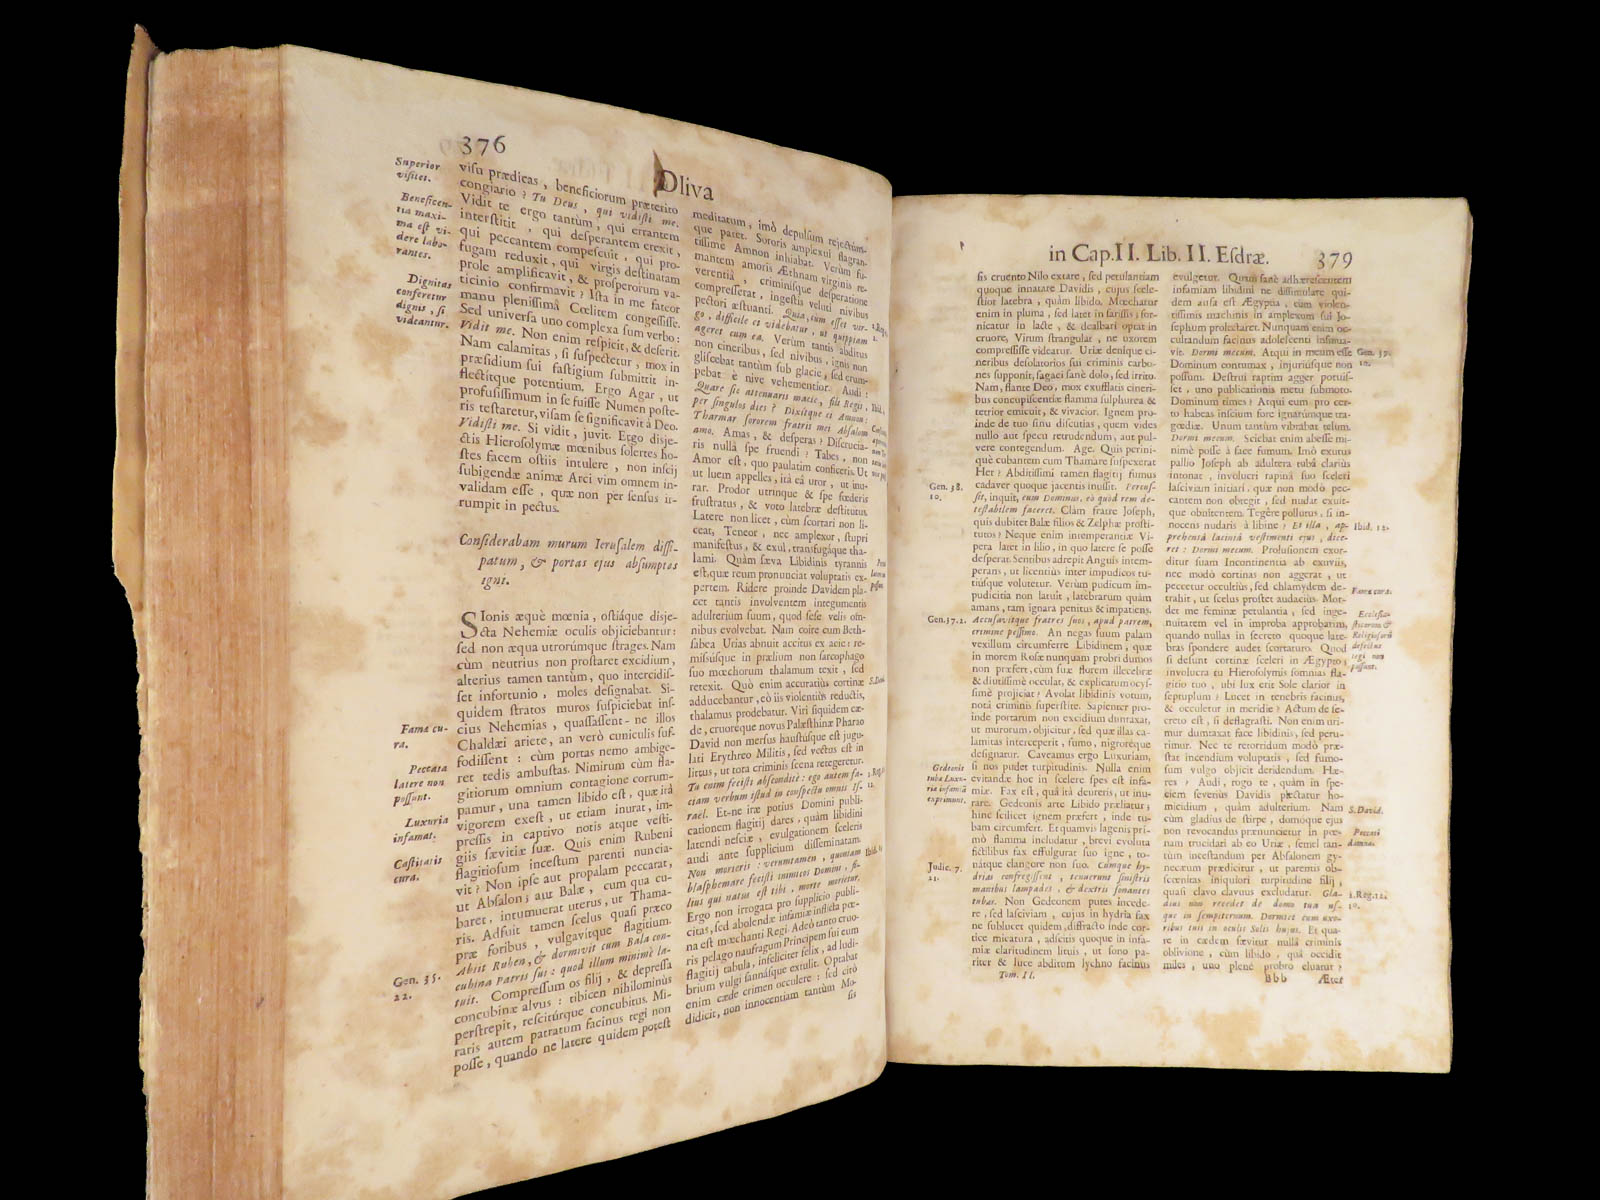 376
Oliva
Superior
visitet.
Beneficen-
tia maxi-
ma est vi-
dere labo-
rantes.
Dignitas
conferetur
dignis, si
videantur.
visu prædicas, beneficiorum præterito
congiario? Tu Deus, qui vidisti me.
Vidit te ergo tantùm, qui errantem
interstitit, qui desperantem erexit,
qui peccantem compescuit, qui pro-
fugam reduxit, qui virgis destinatam
prole amplificavit, & prosperorum va-
ticinio confirmavit? Ista in me fateor
manu plenissimâ Cœlitem congessisse.
Sed universa uno complexa sum verbo:
Vidit me. Non enim respicit, & deserit.
Nam calamitas, si suspectetur, mox in
præsidium sui fastigium submittit in-
flectitque potentium. Ergo Agar, ut
profusissimum in se fuisse Numen poste-
ris testaretur, visam se significavit à Deo.
Vidisti me. Si vidit, juvit. Ergo disje-
ctis Hierosolymæ mœnibus solertes ho-
stes facem ostiis intulere, non inscij
subigendæ animæ Arci vim omnem in-
validam esse, quæ non per sensus ir-
rumpit in pectus.
Considerabam murum Ierusalem dissi-
patum, & portas ejus absumptas
igni.
SIonis æquè mœnia, ostiáque disje-
cta Nehemiæ oculis objiciebantur:
sed non æqua utrorúmque strages. Nam
cùm neutrius non prostaret excidium,
alterius tamen tantùm, quo intercidis-
set infortunio, moles designabat. Si-
quidem stratos muros suspiciebat ins-
cius Nehemias, quassassent-ne illos
Chaldæi ariete, an verò cuniculis suf-
fodissent: cùm portas nemo ambige-
ret tedis ambustas. Nimirum cùm fla-
gitiorum omnium contagione corrum-
pamur, una tamen libido est, quæ ità
vigorem exest, ut etiam inurat, im-
pressis in captivo notis atque vesti-
giis sævitiæ suæ. Quis enim Rubeni
flagitiosum incestum parenti nuncia-
vit? Non ipse aut propalam peccarat,
ut Absalon; aut Balæ, cum qua cu-
baret, intumuerat uterus, ut Thama-
ris. Adfuit tamen scelus quasi præco
præ foribus, vulgavitque flagitium.
Abiit Ruben, & dormivit cum Bala con-
cubina Patris sui: quod illum minimè la-
tuit. Compressum os filij, & depressa
concubinæ alvus: tibicen nihilominus
perstrepit, rescitúrque concubitus. Mi-
raris autem patratum facinus tegi non
posse, quando ne latere quidem potest
Fama cu-
ra.
Peccata
latere non
possunt.
Luxuria
infamat.
Castitatis
cura.
Gen. 35.
22.
meditatum, imò depulsum rejectúm-
que patet. Sororis amplexui flagran-
tissimè Amnon inhiabat. Verùm fu-
mantem amoris Æthnam virginis re-
verentiâ, criminisque desperatione
compresserat, ingestis veluti nivibus
pectori æstuanti. Quia, cùm esset vir-
go, difficile ei videbatur, ut quippiam
ageret cum ea. Verùm tantis abditus
non cineribus, sed nivibus, ignis non
gliscebat tantùm sub glacie, sed erum-
pebat è nive vehementior. Audi:
Quare sic attenuaris macie, fili Regis,
per singulos dies? Dixitque ei Amnon:
Thamar sororem fratris mei Absalom
amo. Amas, & desperas? Discrucia-
ris nullâ spe fruendi? Tabes, non
Amor est, quo paulatim conficeris. Ut
ut luem appelles, ità eâ uror, ut inu-
rar. Prodor utrinque & spe fœderis
frustratus, & voto latebræ destitutus.
Latere non licet, cùm scortari non li-
ceat, Teneor, nec amplexor, stupri
manifestus, & exul, transfugáque tha-
lami. Quàm sæva Libidinis tyrannis
est, quæ reum pronunciat voluptatis ex-
pertem. Ridere proinde Davidem pla-
cet tantis involventem integumentis
adulterium suum, quod sese velis om-
nibus evolvebat. Nam coire cum Beth-
sabea Urias abnuit accitus ex acie: re-
misúsque in prælium non sarcophago
suo mœchorum thalamum texit, sed
retexit. Quò enim accuratiùs cortinæ
adducebantur, eò iis violentiùs reductis,
thalamus prodebatur. Viri siquidem cæ-
de, cruoreque novus Palæsthinæ Pharao
David non mersus haustúsque est jugu-
lati Erythreo Militis, sed vectus est in
littus, ut tota criminis scena retegeretur.
Tu enim fecisti absconditè: ego autem fa-
ciam verbum istud in conspectu omnis Is-
raël. Et-ne iræ potius Domini publi-
cationem flagitij dares, quàm libidini
latendi nesciæ, evulgationem sceleris
audi ante supplicium disseminatam.
Non morieris: verumtamen, quoniam
blasphemare fecisti inimicos Domini, fi-
lius qui natus est tibi, morte morietur.
Ergo non irrogata pro supplicio publi-
citas, sed abolendæ infamiæ inflicta pœ-
na est mœchanti Regi. Adeò tanto cruo-
ris pelago naufragum Principem sui eum
flagitij tabula, infeliciter felix, ad ludi-
brium vulgi sannásque extulit. Optabat
enim cæde crimen occulere: sed citò
didicit, non innocentiam tantùm Mo-
sis
in Cap. II. Lib. II. Esdræ. 379
sis cruento Nilo extare, sed petulantiam
quoque innatare Davidis, cujus scele-
stior latebra, quàm libido. Mœchatur
enim in pluma, sed latet in sarissis; for-
nicatur in lacte, & dealbari optat in
cruore, Virum strangulat, ne uxorem
compressisse videatur. Uriæ denique ci-
neribus desolatorios sui criminis carbo-
nes supponit, sagaci sanè dolo, sed irrito.
Nam, flante Deo, mox exufflatis cineri-
bus concupiscendæ flamma sulphurea &
tetrior emicuit, & vivacior. Ignem pro-
inde de tuo sinu discutias, quem vides
nullo aut specu retrudendum, aut pul-
vere contegendum. Age. Quis perini-
què cubantem cum Thamare suspexerat
Her? Abditissimi tamen flagitij fumus
cadaver quoque jacentis inussit. Percus-
sit, inquit, eum Dominus, eò quòd rem de-
testabilem faceret. Clàm fratre Joseph,
quis dubitet Balæ filios & Zelphæ prosti-
tutos? Neque enim intemperantiæ Vi-
pera latet in lilio, in quo latere se posse
desperat. Sentibus adrepit Anguis intem-
perans, ut licentiùs inter impudicos tu-
tiúsque volutetur. Verùm pudicum im-
pudicitia non latuit, latebrarum quàm
amans, tam ignara penitus & impatiens.
Accusavitque fratres suos, apud patrem,
crimine pessimo. An negas suum palam
vexillum circumferre Libidinem, quæ
in morem Rosæ nunquam probri dumos
non præfert, cùm suæ florem illecebræ
& diutissimè occulat, & explicatum ocys-
simè projiciat? Avolat libidinis votum,
notâ criminis superstite. Sapienter pro-
inde portarum non excidium duntaxat,
ut murorum, objicitur, sed quæ illas ca-
lamitas interceperit, fumo, nigroréque
designatur. Caveamus ergo Luxuriam,
si nos pudet turpitudinis. Nulla enim
evitandæ hoc in scelere spes est infa-
miæ. Fax est, quâ ità deureris, ut inu-
rare. Gedeonis arte Libido præliatur;
hinc scilicet ignem præfert, inde tu-
bam circumfert. Et quamvis lagenis pri-
mò flamma includatur, brevi evoluta
fictilibus fax effulgurat suo igne, to-
nátque clangore non suo. Cúmque hy-
drias confregissent, tenuerunt sinistris
manibus lampades, & dextris sonantes
tubas. Non Gedeonem putes incede-
re, sed lasciviam, cujus in hydria fax
ne sublucet quidem, diffracto inde cor-
tice micatura, adscitis quoque in infa-
miæ claritudinem lituis, ut sono pa-
riter & luce abditum lychno facinus
Tom. II.
Gen. 38.
10.
Gen. 37. 2.
Gedeonis
tuba Luxu-
riæ infamiâ
exprimunt.
Judic. 7.
21.
evulgetur. Quin sanè adhærescentem
infamiam libidini ne dissimulare qui-
dem ausa est Ægyptia, cùm violen-
tissimis machinis in amplexum sui Jo-
sephum prolectaret. Nunquam enim oc-
cultandum facinus adolescenti insinua-
vit. Dormi mecum. Atqui in meum esse
Dominum contumax, injuriúsque non
possum. Destrui raptim agger potuis-
set, uno publicationis metu submoto.
Dominum times? Atqui eum pro cer-
to habeas inscium fore ignarúmque tra-
gœdiæ. Unum tantùm vibrabat telum.
Dormi mecum. Sciebat enim abesse mi-
nimè posse à face fumum. Imò exutus
pallio Joseph ab adultera tubâ clariùs
intonat, involucri rapinâ suo sceleri
lasciviam initiari, quæ non modò pec-
cantem non obtegit, sed nudat exuit-
que obnitentem. Tegêre pollutus, si in-
nocens nudaris à libine? Et illa, ap-
prehensâ laciniâ vestimenti ejus, dice-
ret: Dormi mecum. Profusionem exor-
ditur suam Incontinentia ab exuviis,
nec modò cortinas non aggerat, ut
peccetur occultiùs, sed chlamydem de-
trahit, ut scelus prostet audacius. Mor-
det me feminæ petulantia, sed inge-
nuitatem vel in improba approbatim,
quando nullas in secreto quoque late-
bras spondere audet scortaturo. Quòd
si desunt cortinæ sceleri in Ægypto;
involucra tu Hierosolymis somnias fla-
gitio tuo, ubi lux erit Sole clarior in
septuplum? Lucet in tenebris facinus,
& occuletur in meridie? Actum de se-
creto est, si deflagrasti. Non enim uri-
mur dumtaxat face libidinis, sed peru-
rimur. Nec te retorridum modò præ-
stat incendium voluptatis, sed fumo-
sum vulgo objicit deridendum. Hæ-
res? Audi, rogo te, quàm in spe-
ciem sævenus Davidis plectatur ho-
micidium, quàm adulterium. Nam
cùm gladius de stirpe, domóque ejus
non revocandus prænuncietur in pœ-
nam trucidati ab eo Uriæ, semel tan-
tùm incestandum per Absalonem gy-
næcæum prædicitur, ut paternis ob-
scœnitas iniquiori turpitudine filij,
quasi clavo clavus excludatur. Gla-
dius non recedet de domo tua us-
que in sempiternum. Dormiet cum uxo-
ribus tuis in oculis Solis hujus. Et qua-
re in cædem sævitur nullâ criminis
oblivione, cùm libido, quâ occidit
miles, uno plenè probro eluatur?
Bbb Æter
Gen. 39.
10.
Ibid. 12.
Famæ cura.
Ecclesia-
sticorum &
Religiosorū
defectus
tegi non
possunt.
S. David.
Peccati
damna.
2. Reg. 12.
10.